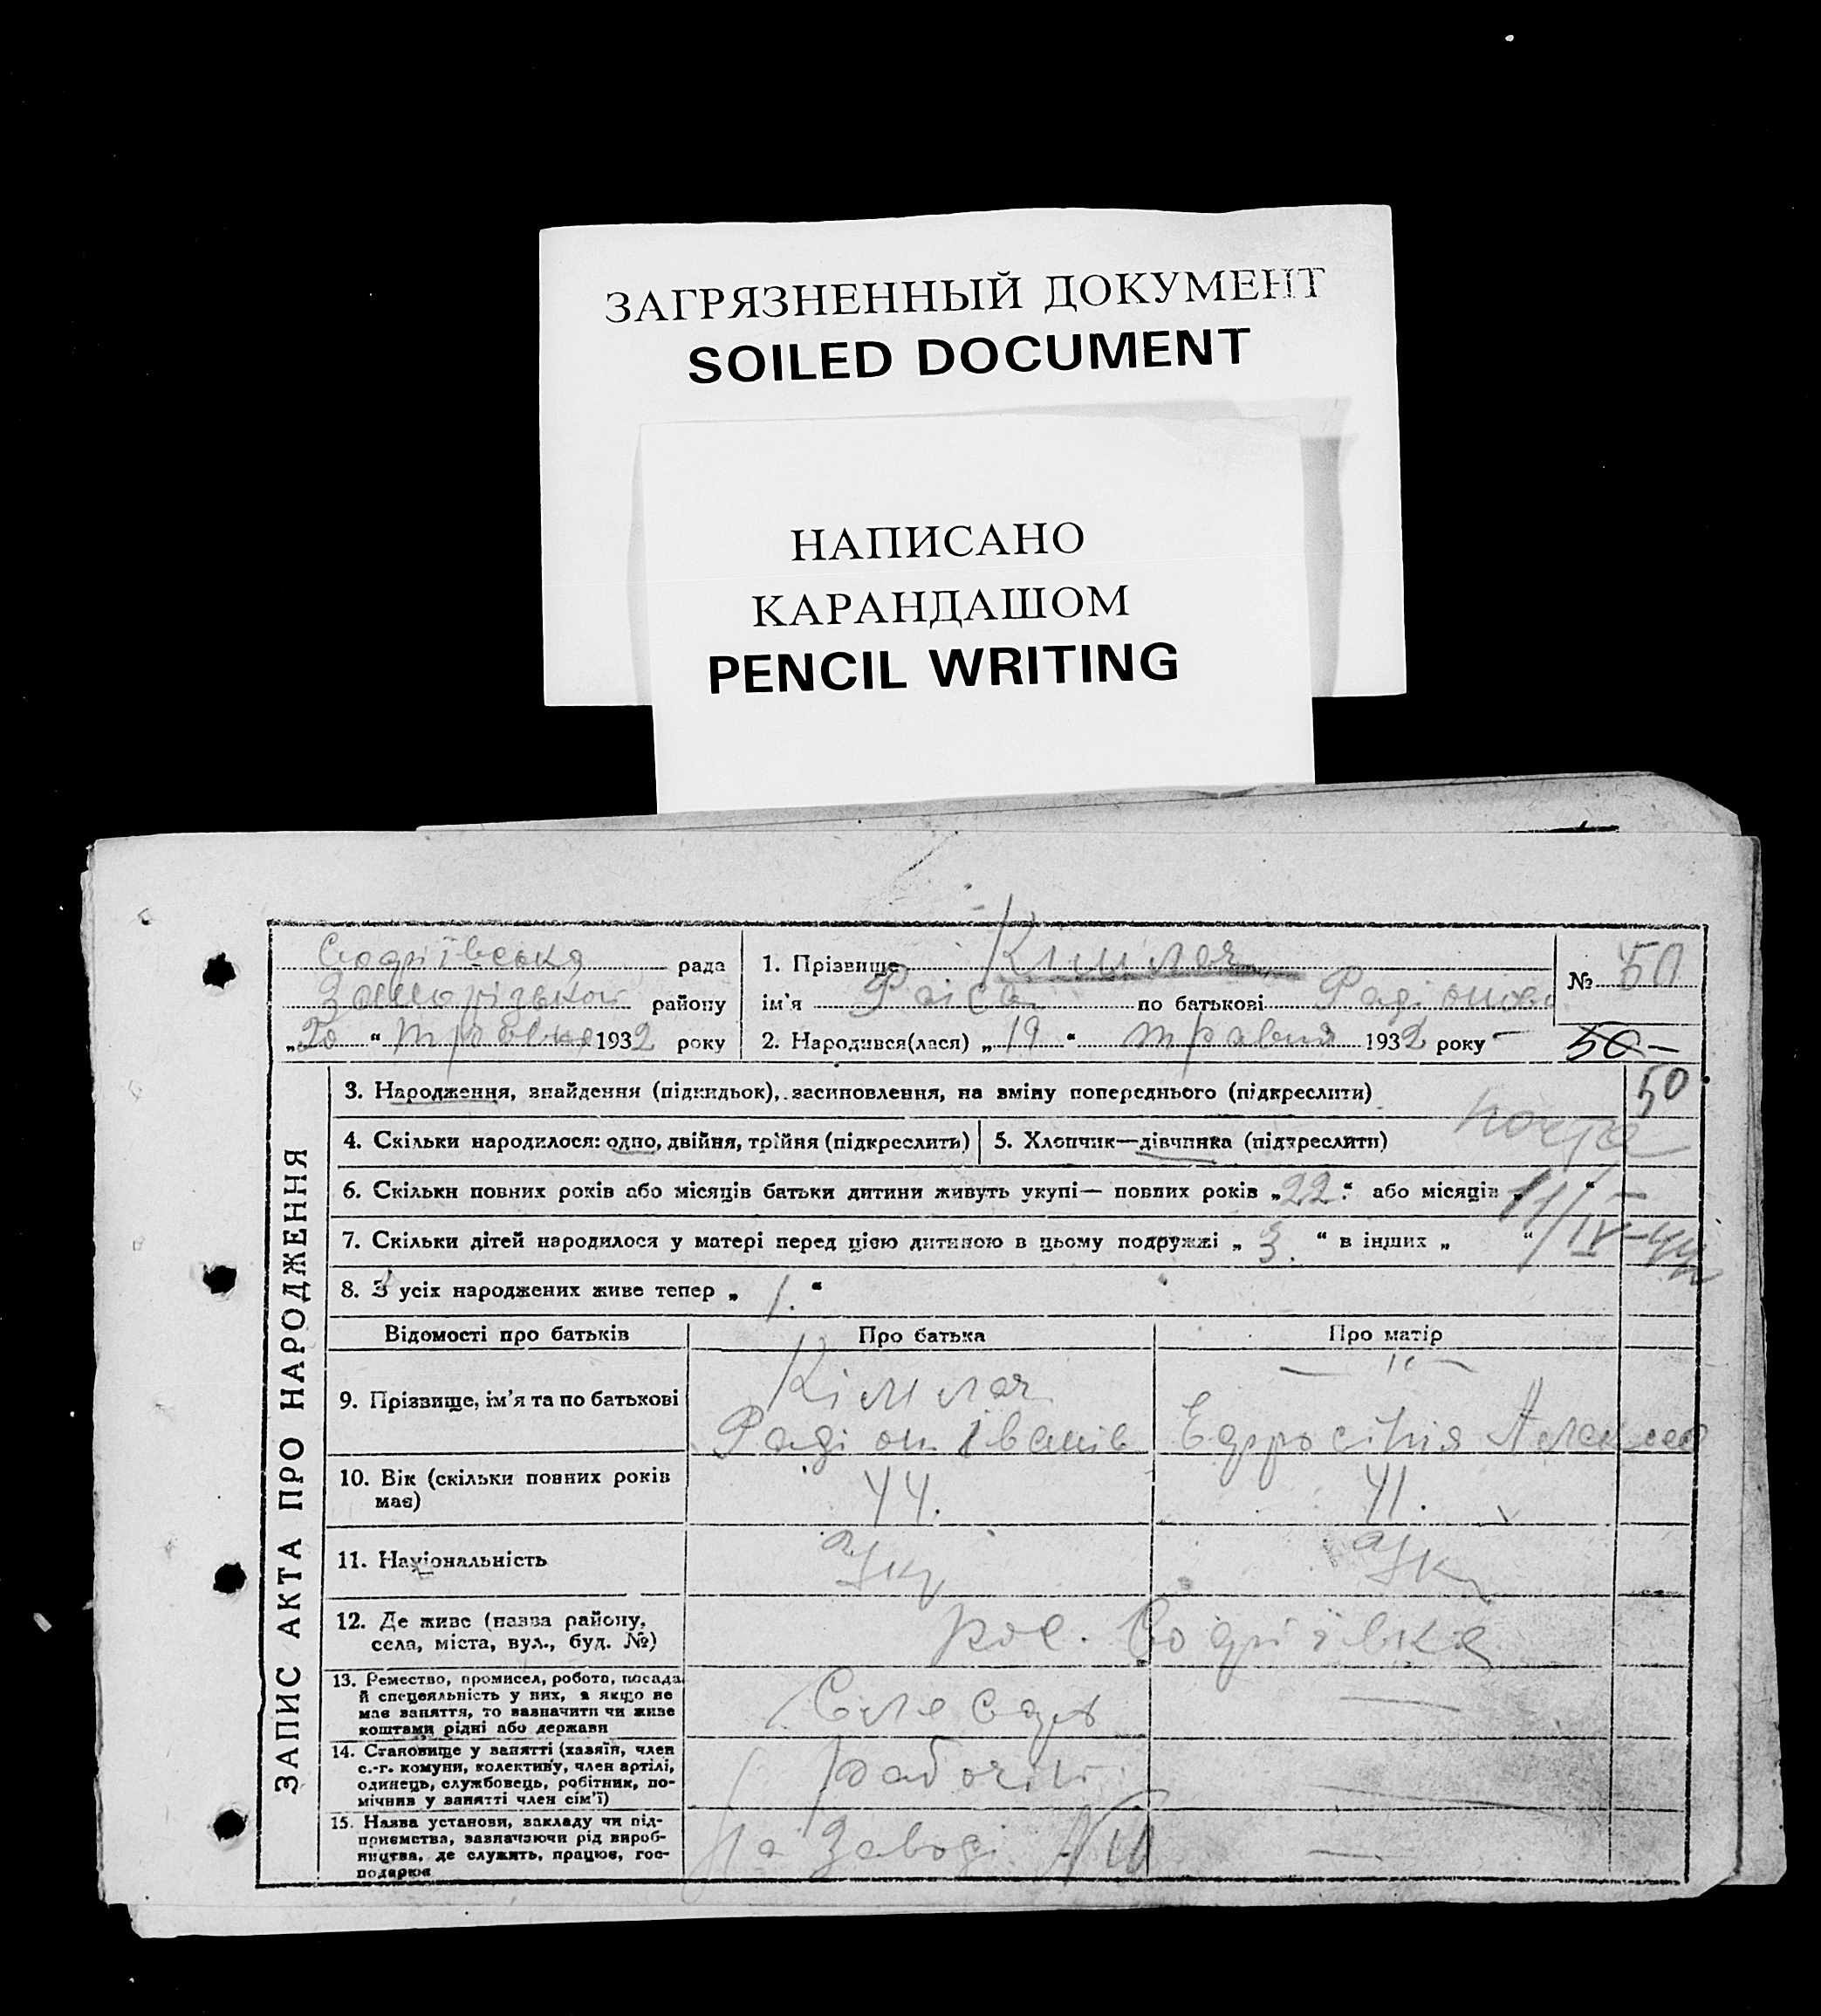 ЗАГРЯЗНЕННЫЙ ДОКУМЕНТ
SOILED DOCUMENT
НАПИСАНО
КАРАНДАШОМ
PENCIL WRITING
ЗАПИС АКТА ПРО НАРОДЖЕННЯ
Софіївська рада
району
„20“ травня 1932 року
1. Прізвище
ім'я Раіса по батькові
2. Народився(лася) „19“ травня 1932 року
№ 50
50
50
3. Народження, знайдення (підкидьок), засиновлення, на зміну попереднього (підкреслити)
4. Скільки народилося: одно, двійня, трійня (підкреслить)
5. Хлопчик—дівчинка (підкреслити)
6. Скільки повних років або місяців батьки дитини живуть укупі— повних років „22“ або місяців „ “
7. Скільки дітей народилося у матері перед цією дитиною в цьому подружжі „3.“ в інших „ “
8. З усіх народжених живе тепер „1.“
Відомості про батьків
Про батька
Про матір
9. Прізвище, ім'я та по батькові
Кімлач
Радіон Іванів
— " —
Ефросінія
10. Вік (скільки повних років має)
44.
41.
11. Національність
Укр
Ук
12. Де живе (назва району, села, міста, вул., буд. №)
пос. Софіївка
13. Ремество, промисел, робота, посада й спецеяльність у них, а якщо не має заняття, то зазначити чи живе коштами рідні або держави
Слесарь
—
14. Становище у занятті (хазяїн, член с.-г. комуни, колективу, член артілі, одинець, службовець, робітник, помічник у занятті член сім'ї)
рабочий
—
15. Назва установи, закладу чи підприємства, зазначаючи рід виробництва, де служить, працює, господарює
На Заводі
—